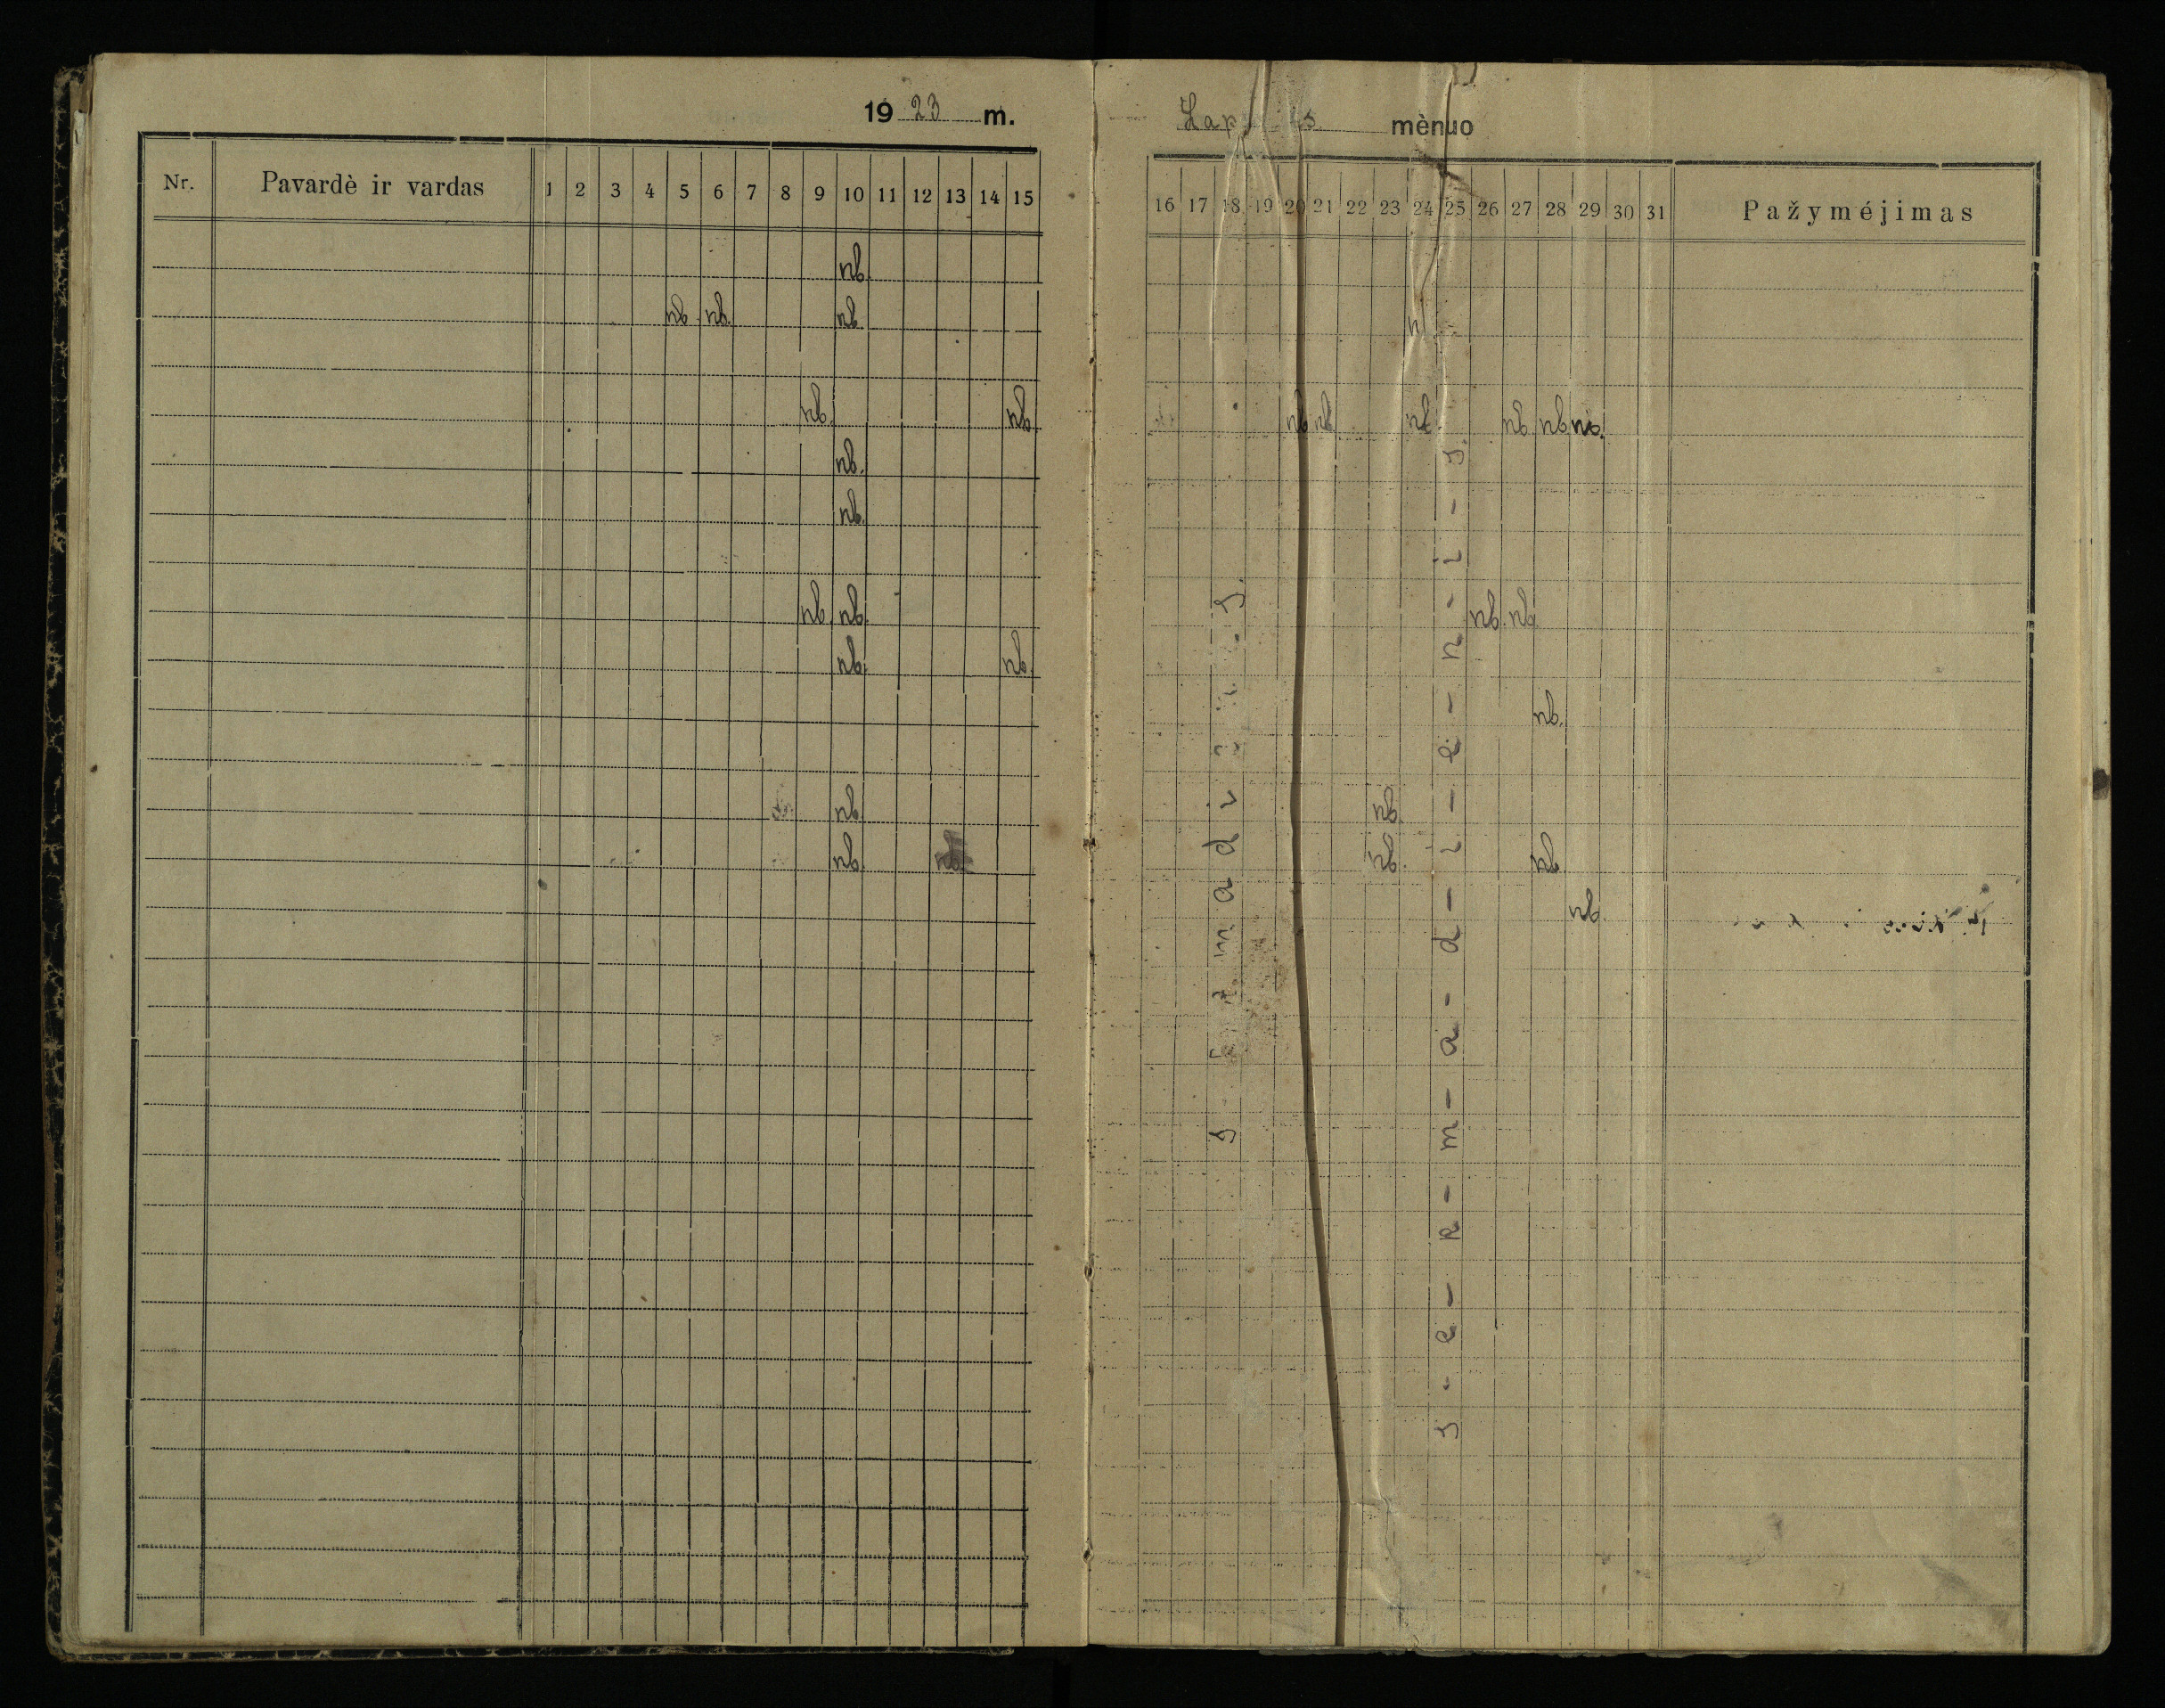 19 23 m.
mènuo
Nr. Pavardè ir vardas 1 2 3 4 5 6 7 8 9 10 11 12 13 14 15
16 17 18 19 20 21 22 23 24 25 26 27 28 29 30 31 Pažymėjimas
nb.
nb. nb. nb.
nb. nb. nb nb nb. nb. nb nb.
nb.
nb.
nb. nb. nb. nb.
nb. nb.
nb.
nb. nb.
nb. nb. nb. nb.
nb.
s-e-k-m-a-d-i-e-n-i-s.